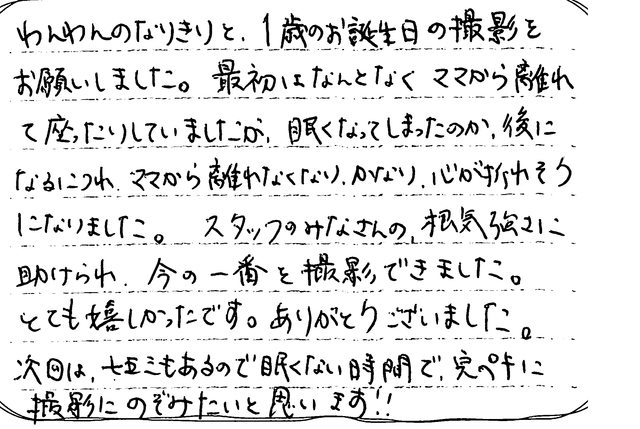 わんわんのなりきりと、1歳のお誕生日の撮影を
お願いしました。最初はなんとなくママから離れ
て座ったりしていましたが、眠くなってしまったのか、後に
なるにつれ、ママから離れなくなり、かなり、心が折れそう
になりました。スタッフのみなさんの、根気強さに
助けられ、今の一番を撮影できました。
とても嬉しかったです。ありがとうございました。
次回は、七五三もあるので眠くない時間で、完ペキに
撮影にのぞみたいと思います!!